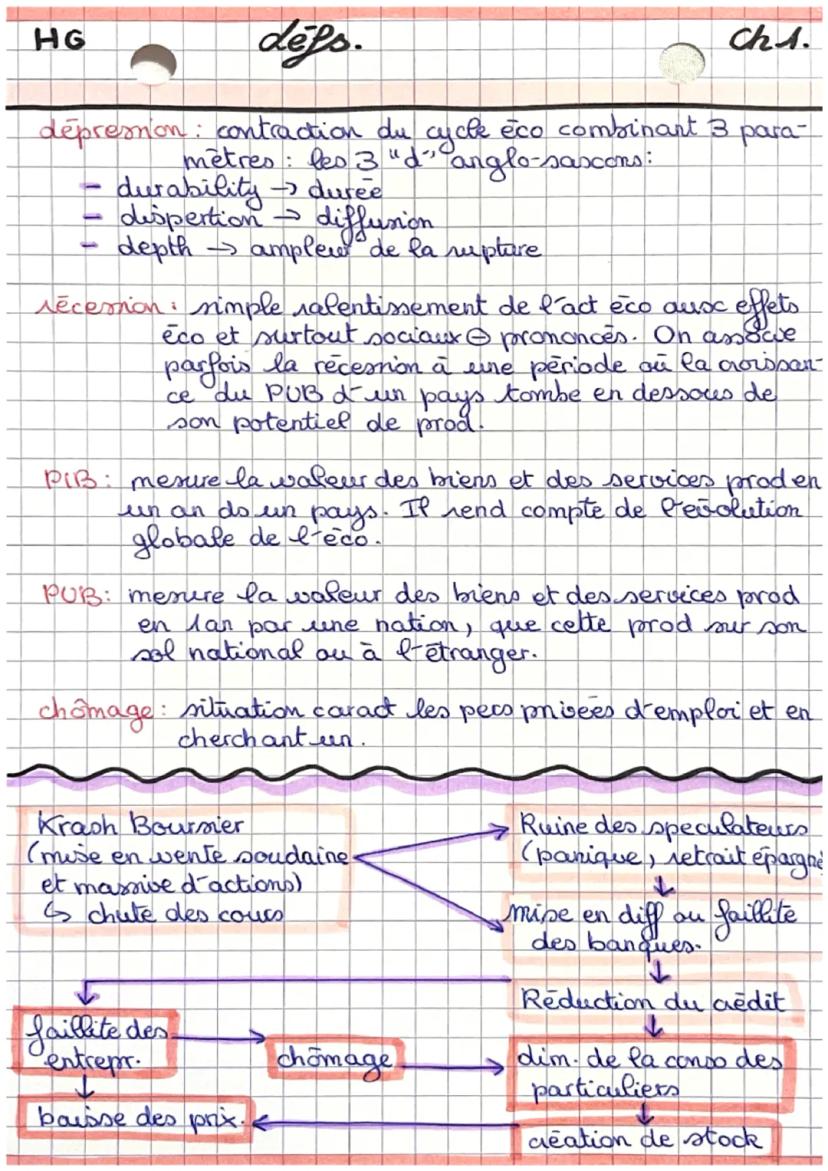 HG défs. Ch 1.
dépression : contraction du cycle éco combinant 3 para-
mètres : les 3 "d" anglo-saxons :
- durability → durée
- dispertion → diffusion
- depth → ampleur de la rupture
récession : simple ralentissement de l'act éco aux effets
éco et surtout sociaux ⊖ prononcés. On associe
parfois la récession à une période où la croissan-
ce du PUB d'un pays tombe en dessous de
son potentiel de prod.
PIB : mesure la valeur des biens et des services prod en
un an ds un pays. Il rend compte de l'évolution
globale de l'éco.
PUB : mesure la valeur des biens et des services prod
en 1 an par une nation, que cette prod sur son
sol national ou à l'étranger.
chômage : situation caract les pers privées d'emploi et en
cherchant un.
Krash Boursier
(mise en vente soudaine
et massive d'actions)
↳ chute des cours
Ruine des speculateurs
(panique, retrait épargne
mise en diff ou faillite
des banques.
Réduction du crédit
faillite des
entrepr.
chômage
dim. de la conso des
particuliers
baisse des prix.
création de stock